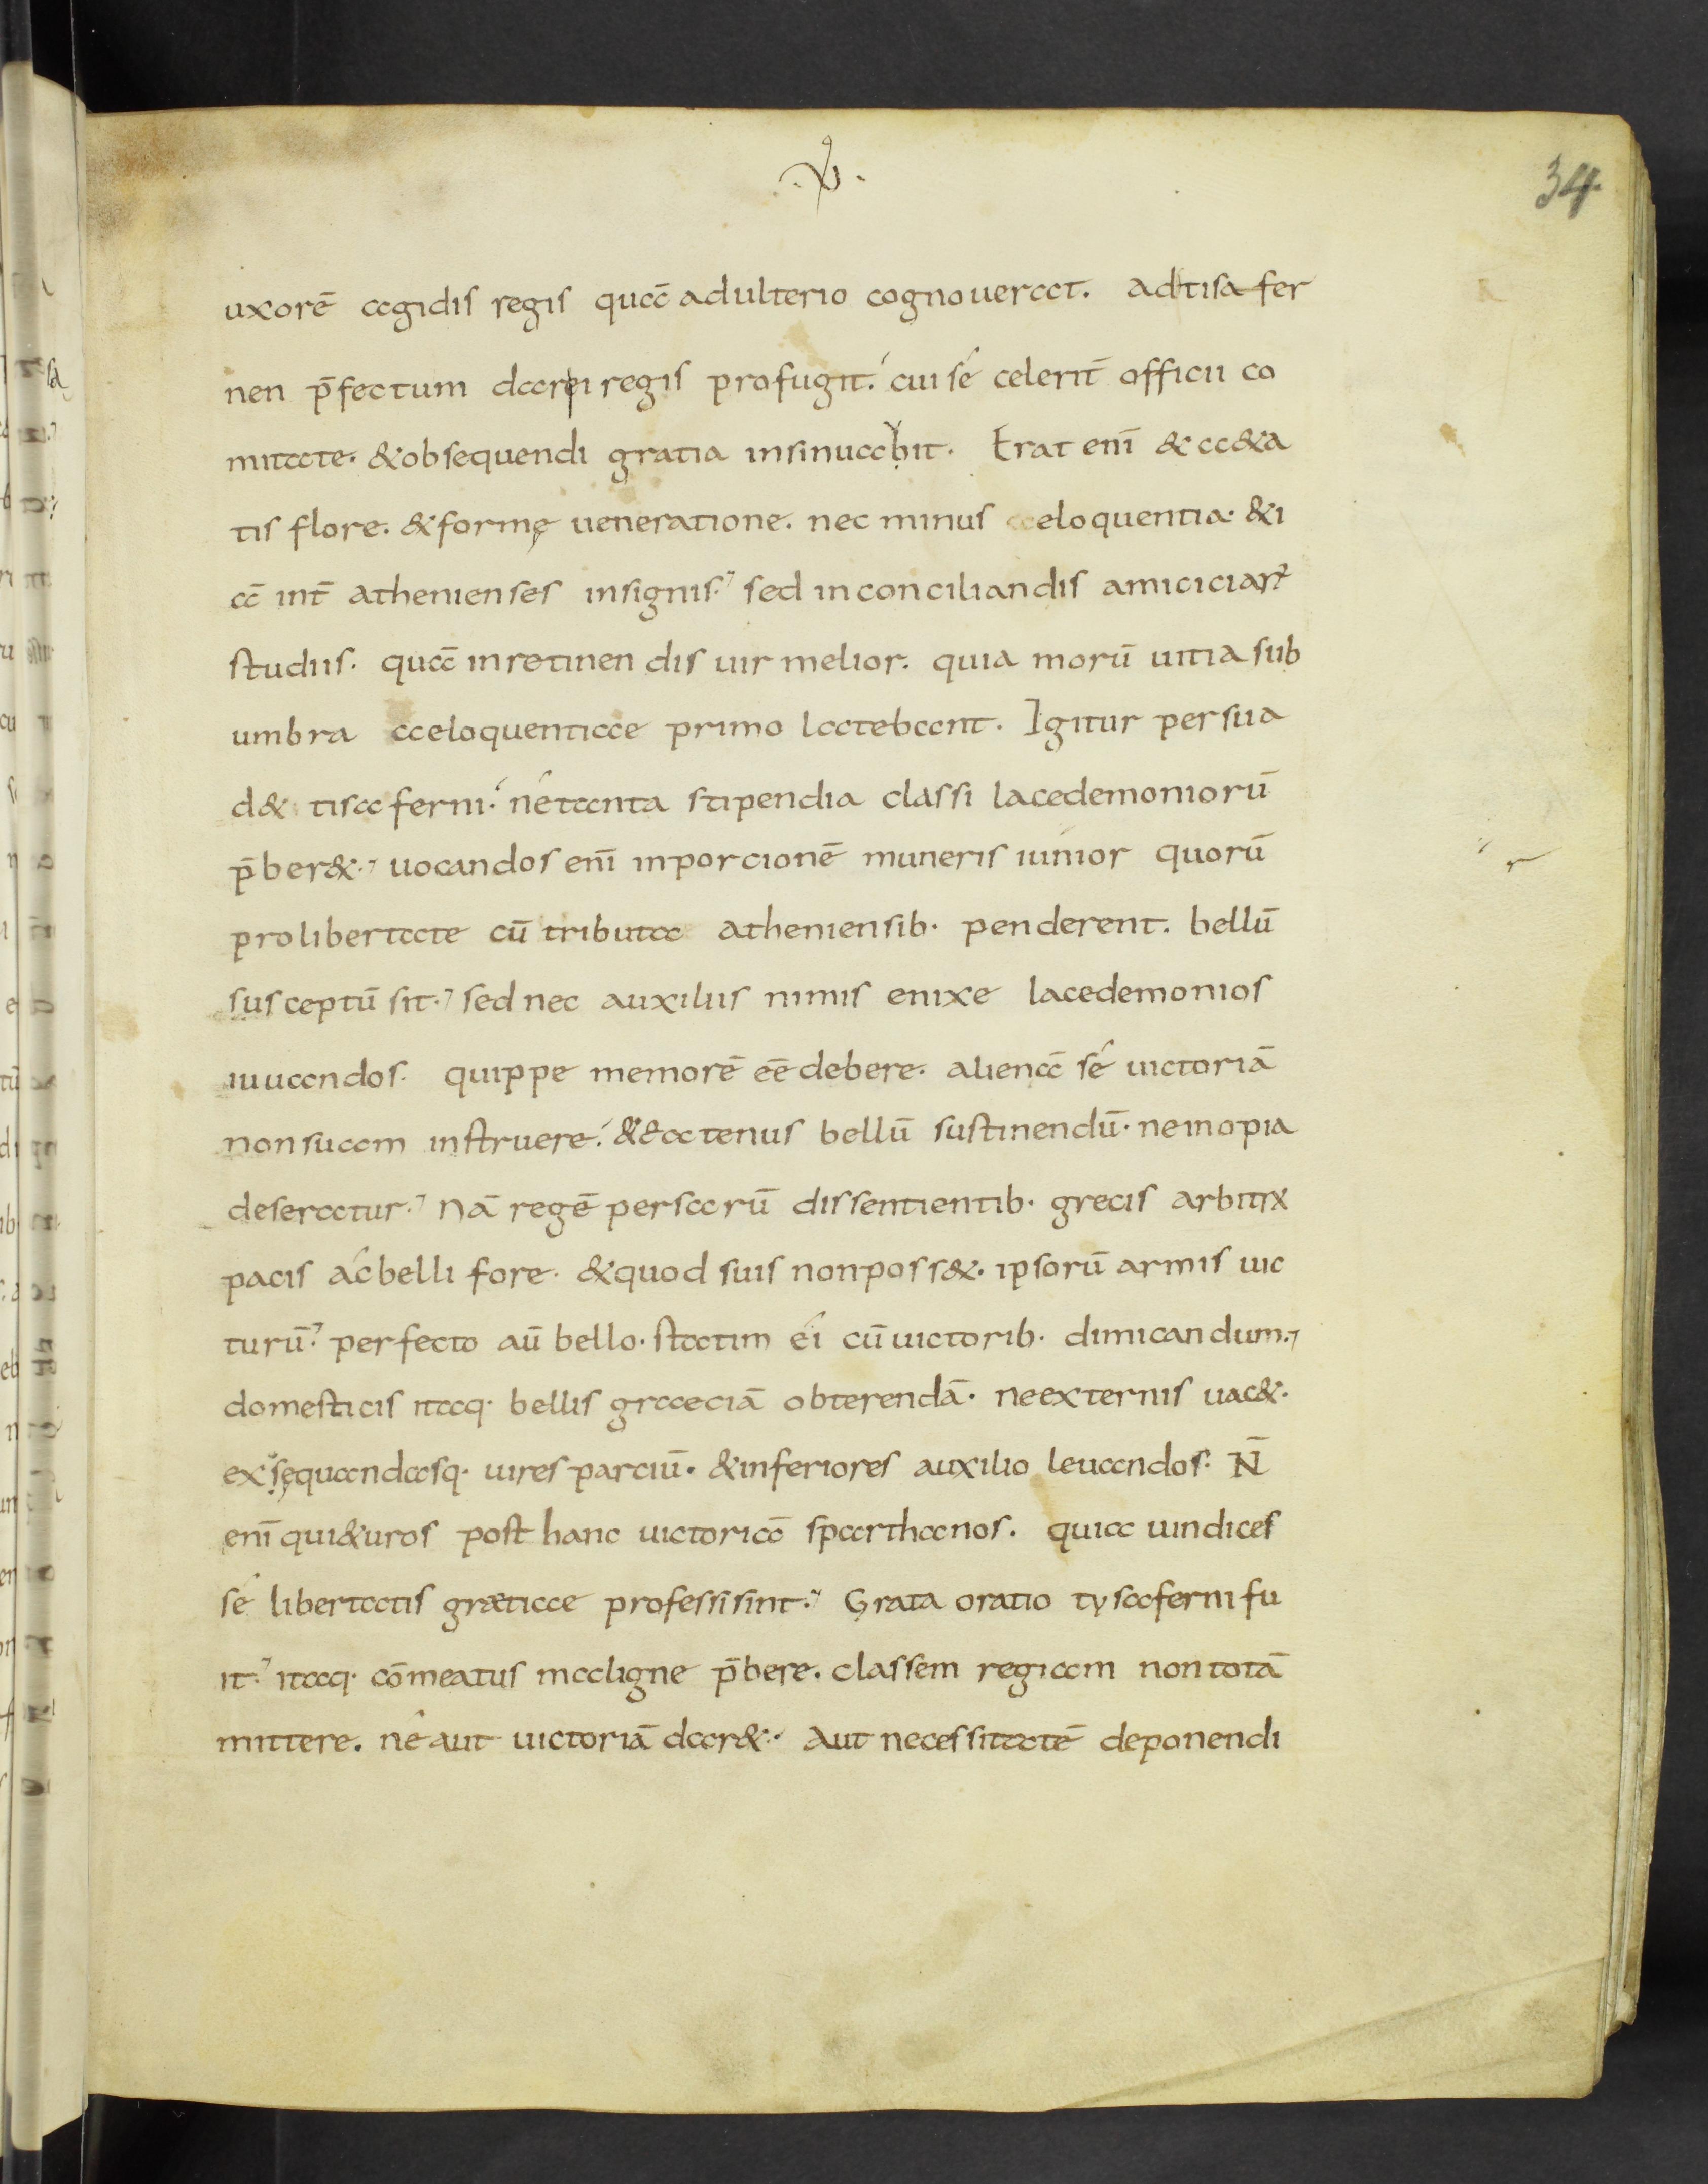 .V.
34.
uxorē agidis regis quā adulterio cognouerat. ad tisafer
nen p̄fectum darii regis profugit. cui sé celerit̄ officii co
mitate. & obsequendi gratia insinuabit. Erat eni᷄ & a&a
tis flore. & formę ueneratione. nec minus eloquentia. & i
ā int̄ athenienses insignis. sed in conciliandis amiciciarꝝ
studiis. quā in retinendis uir melior. quia morū uitia sub
umbra aeloquentiae primo latebant. Igitur persua
d& tisaferni. né tanta stipendia classi lacedemoniorū
p̄ber&. uocandos eni᷄ in porcionē muneris iunior quorū
pro libertate cū tributa atheniensib. penderent. bellū
susceptū sit. sed nec auxiliis nimis enixe lacedemonios
iuuandos. quippe memorē eē debere. alienā sé uictoriā
non suam instruere. & eatenus bellū sustinendū. ne inopia
deseratur. Nā regē persarū dissentientib. grecis arbitrx
pacis ác belli fore. & quod suis non poss&. ipsorū armis uic
turū. perfecto aū bello. statim éi cū uictorib. dimicandum.
domesticis itaq. bellis graeciā obterendā. ne externis uac&.
exsequandasq. uires parciū. & inferiores auxilio leuandos. N̄
eni᷄ qui&uros post hanc uictoriā sparthanos. quia uindices
sé libertatis graeticae professi sint. Grata oratio tysaferni fu
it. itaq. cōmeatus maligne p̄bere. classem regiam non totā
mittere. né aut uictoriā dar&. Aut necessitatē deponendi